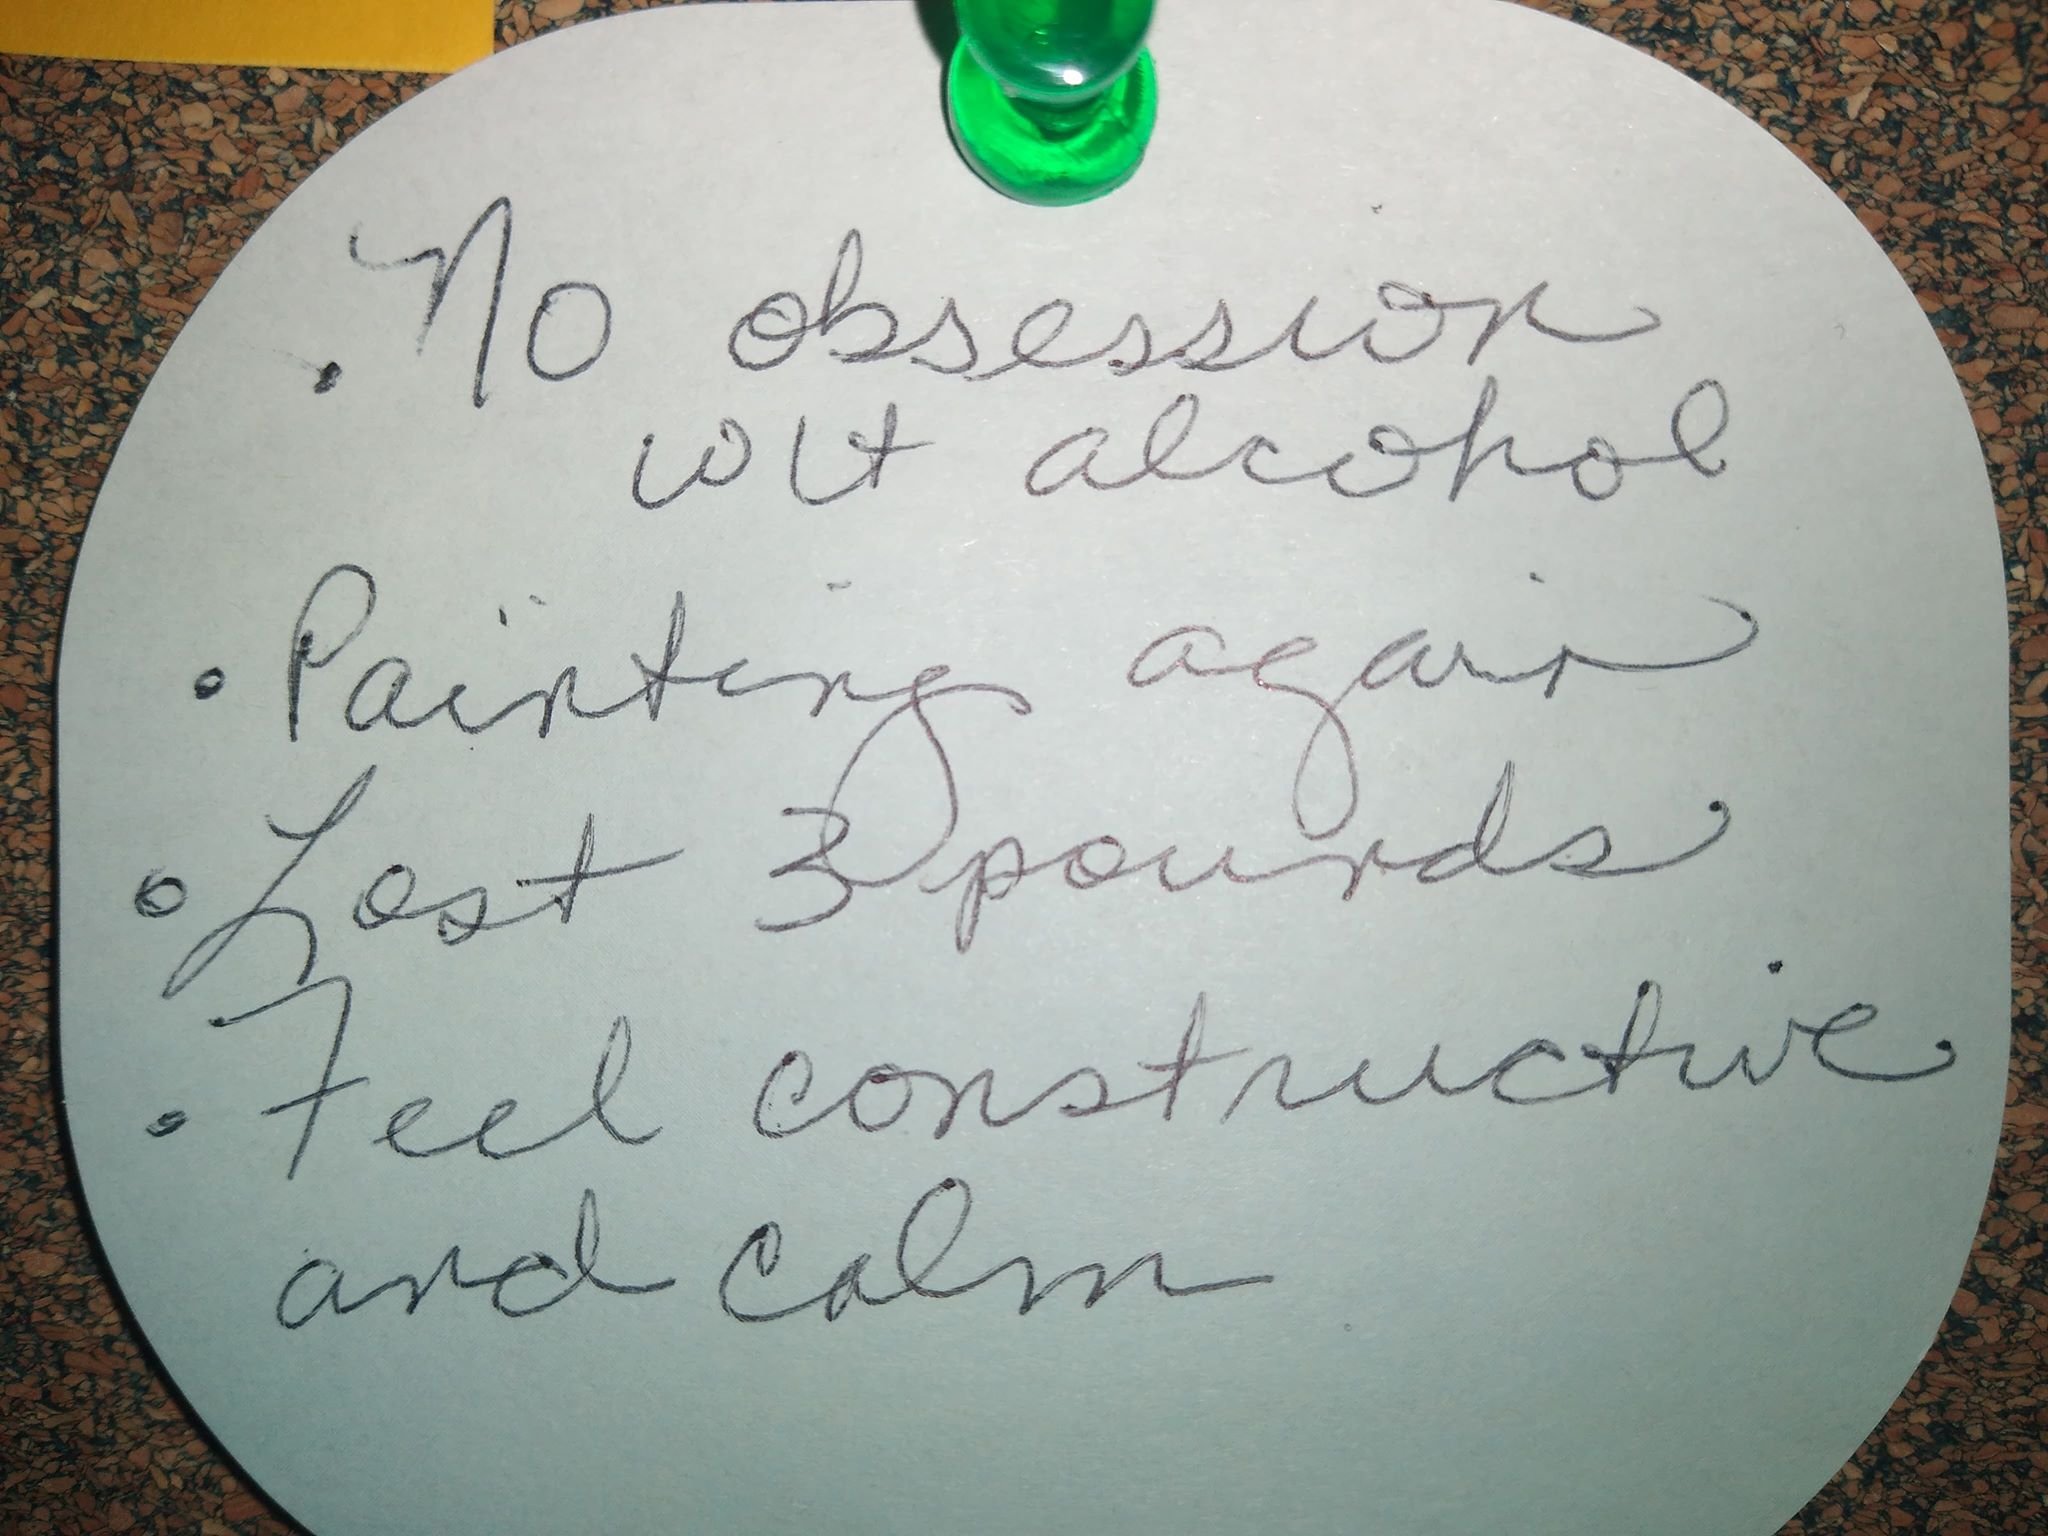 • No obsession
wit alcohol
• Painting again
• Lost 3 pounds
• Feel constructive
and calm